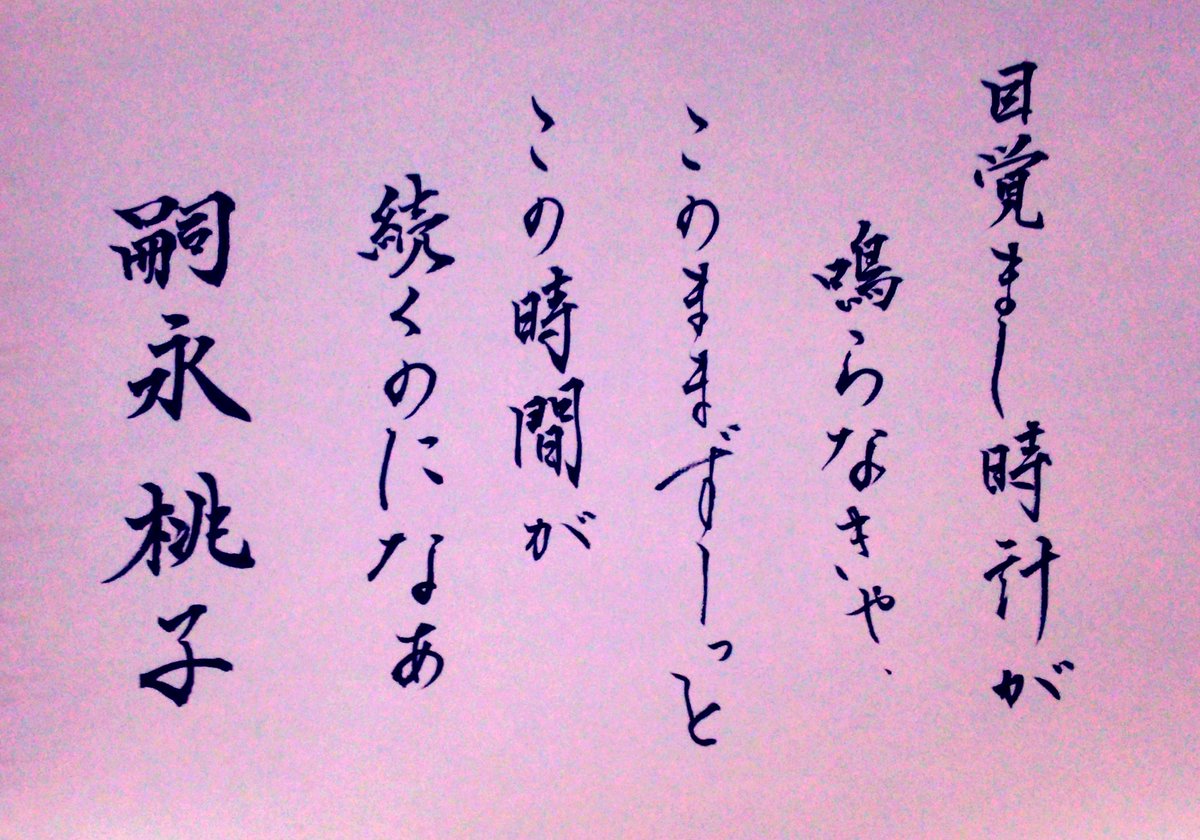 目覚まし時計が
鳴らなきゃ、
このままずーっと
この時間が
続くのになあ
嗣永桃子